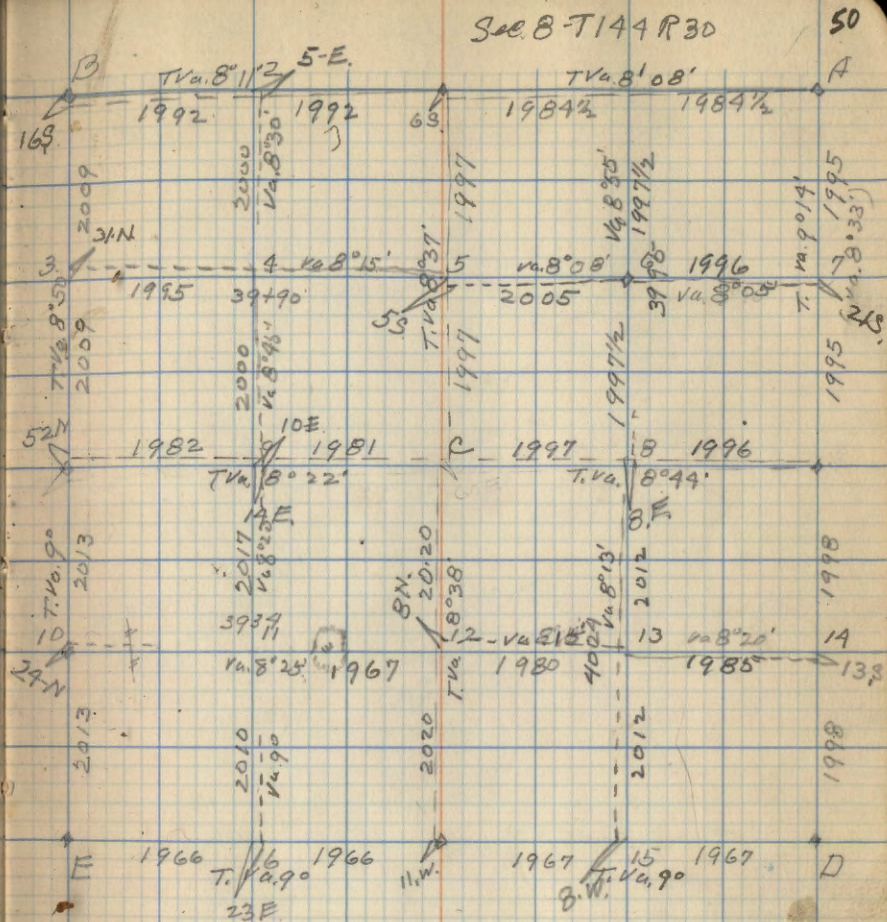 Sec. 8-T144 R30
50
B
T Va. 8°11'
2
5-E.
T Va. 8' 08'
A
1992
1992
1984½
1984½
16S.
6S.
2009
2000
Va. 8°30'
1997
Va 8°55'
1997½
T. Va. 9°14'
1995
(Va. 8°33')
31.N.
3
4
Va 8°15'
5
Va. 8°08'
1996
7
1995
2005
Va. 8°05'
5S
21S.
T. Va. 8°50'
2009
2000
T. Va 8°37'
1997
1997½
1995
52N
10E
1982
9
1981
C
1997
8
1996
T Va.
8° 22'
T. Va.
8°44'
14E
8.E.
T. Va. 9°
2013
2017
8N.
20.20
8°38'
T. Va.
Va 8°13'
2012
1998
10
3934
11
12
13
Va 8°20'
14
24N
Va. 8°25'
1967
1980
4024
1985
13S
2013
2010
Va. 9°
2020
2012
1998
E
1966
6
1966
1967
15
1967
D
T. Va. 9°
11.W.
T. Va. 9°
23E
8.W.